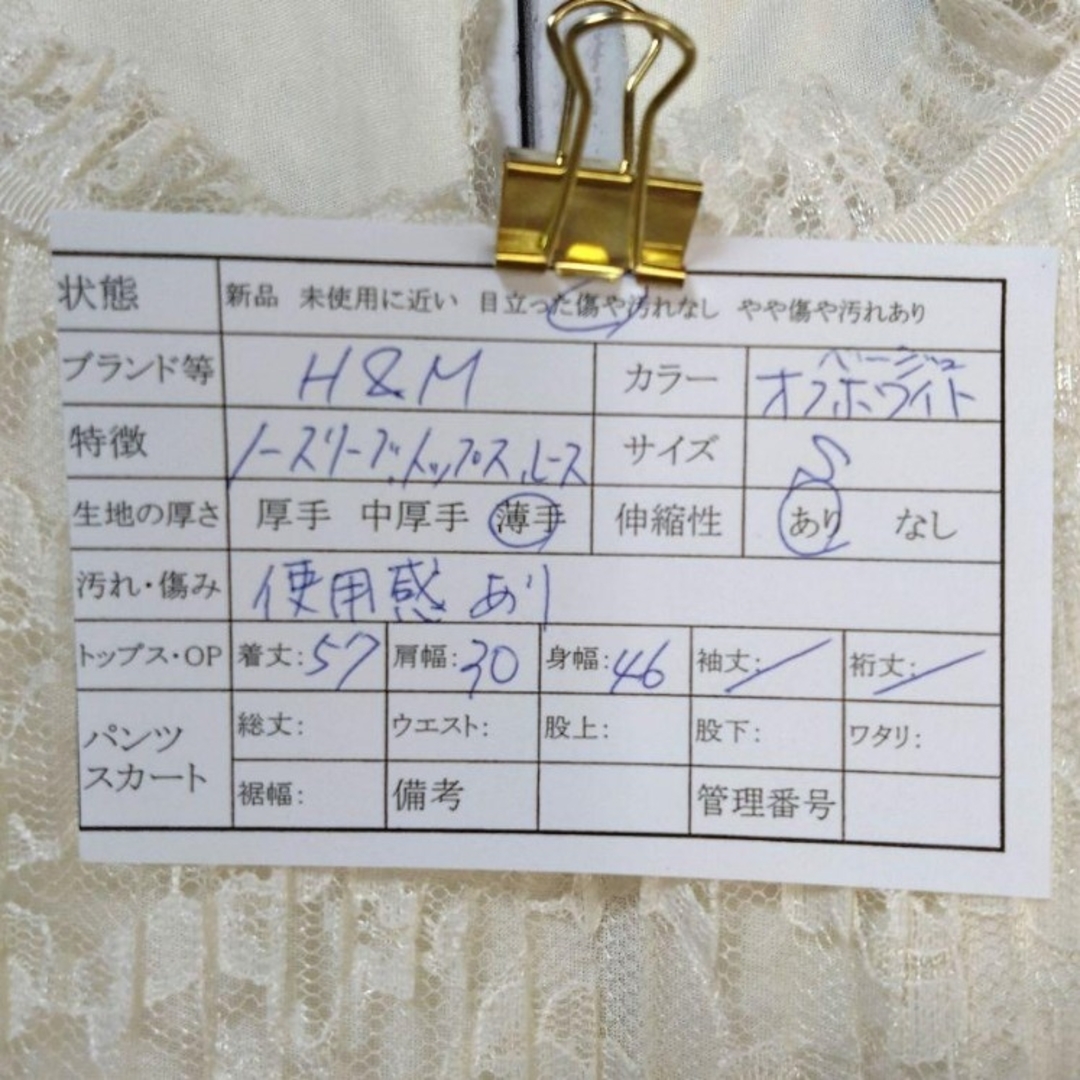 状態 新品 未使用に近い 目立った傷や汚れなし やや傷や汚れあり
ブランド等 H&M カラー ベージュ オフホワイト
特徴 ノースリーブ、トップス、レース サイズ S
生地の厚さ 厚手 中厚手 薄手 伸縮性 あり なし
汚れ・傷み 使用感あり
トップス・OP 着丈:57 肩幅:30 身幅:46 袖丈:/ 裄丈:/
パンツ スカート 総丈: ウエスト: 股上: 股下: ワタリ:
裾幅: 備考 管理番号